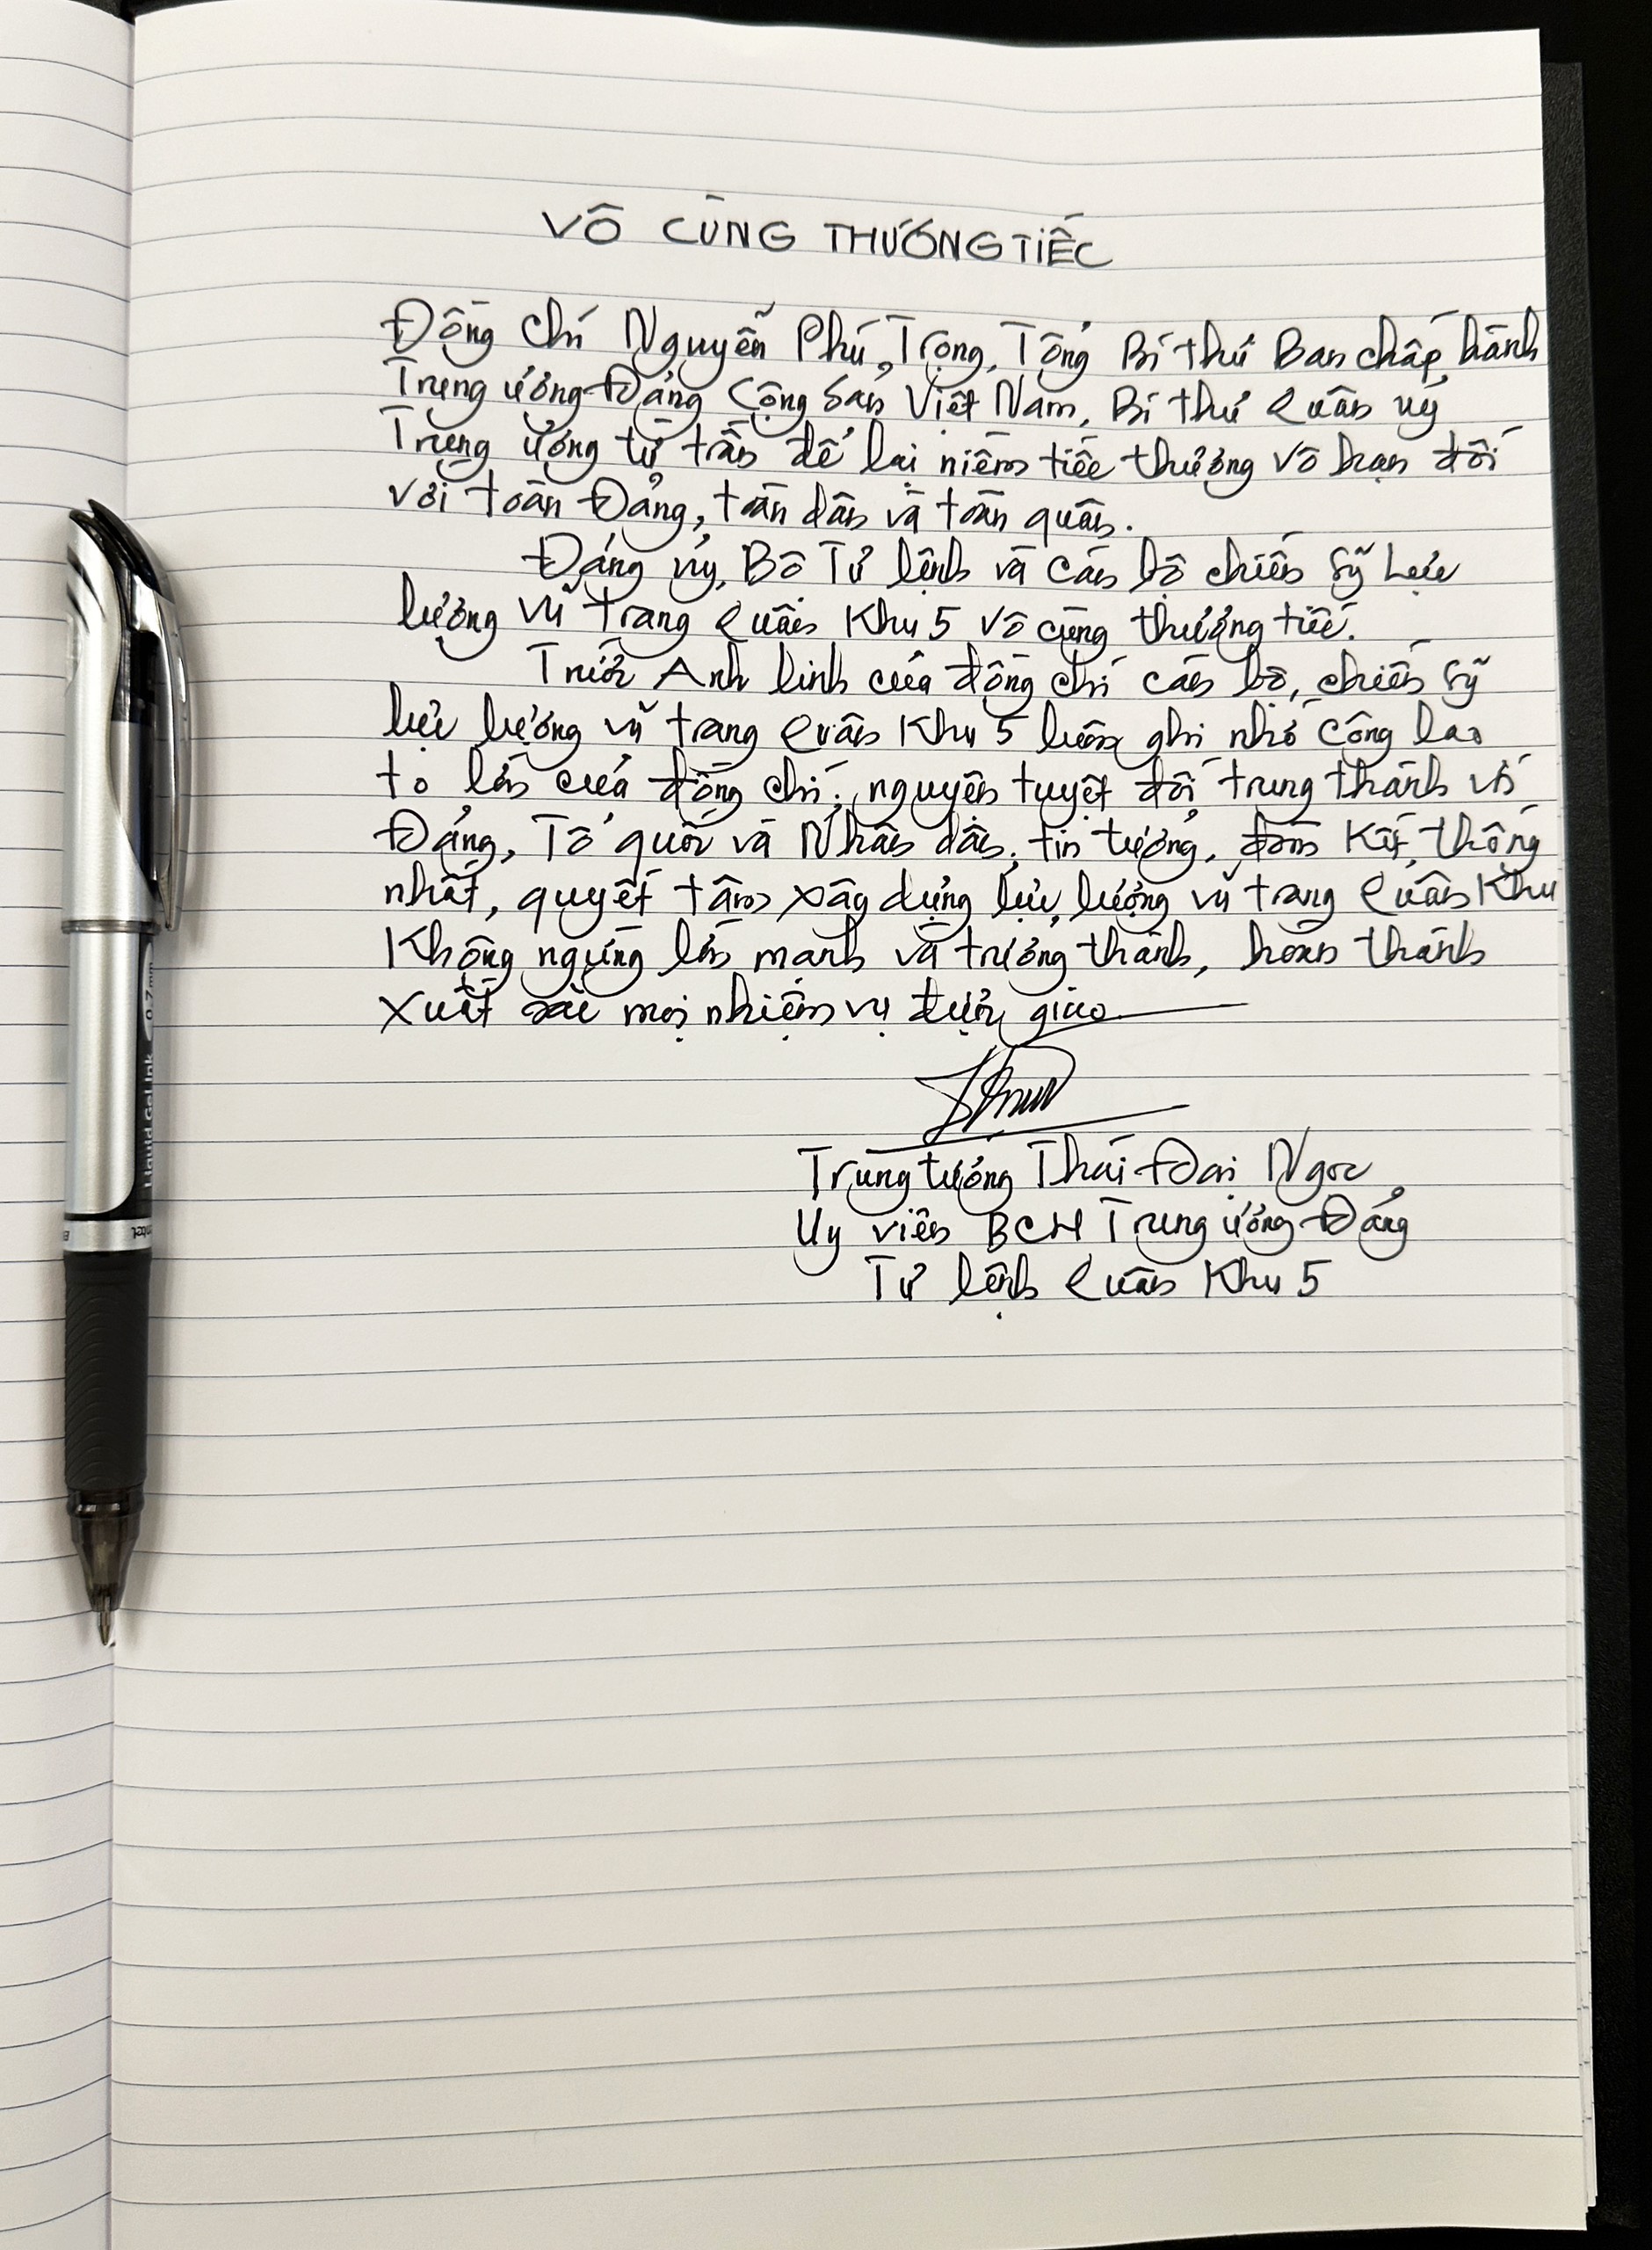 VÔ CÙNG THƯƠNG TIẾC
Đồng chí Nguyễn Phú Trọng, Tổng Bí thư Ban chấp hành
Trung ương Đảng Cộng sản Việt Nam, Bí thư Quân uỷ
Trung ương từ trần để lại niềm tiếc thương vô hạn đối
với toàn Đảng, toàn dân và toàn quân.
Đảng uỷ, Bộ Tư lệnh và cán bộ chiến sỹ Lực
lượng vũ trang Quân Khu 5 vô cùng thương tiếc.
Trước Anh linh của đồng chí cán bộ, chiến sỹ
lực lượng vũ trang Quân Khu 5 luôn ghi nhớ công lao
to lớn của đồng chí; nguyện tuyệt đối trung thành với
Đảng, Tổ quốc và Nhân dân, tin tưởng, đoàn kết, thống
nhất, quyết tâm xây dựng lực lượng vũ trang Quân Khu
Không ngừng lớn mạnh và trưởng thành, hoàn thành
xuất sắc mọi nhiệm vụ được giao
Trung tướng Thái Đại Ngọc
Uỷ viên BCH Trung ương Đảng
Tư lệnh Quân Khu 5
Liquid Gel Ink 0.7mm